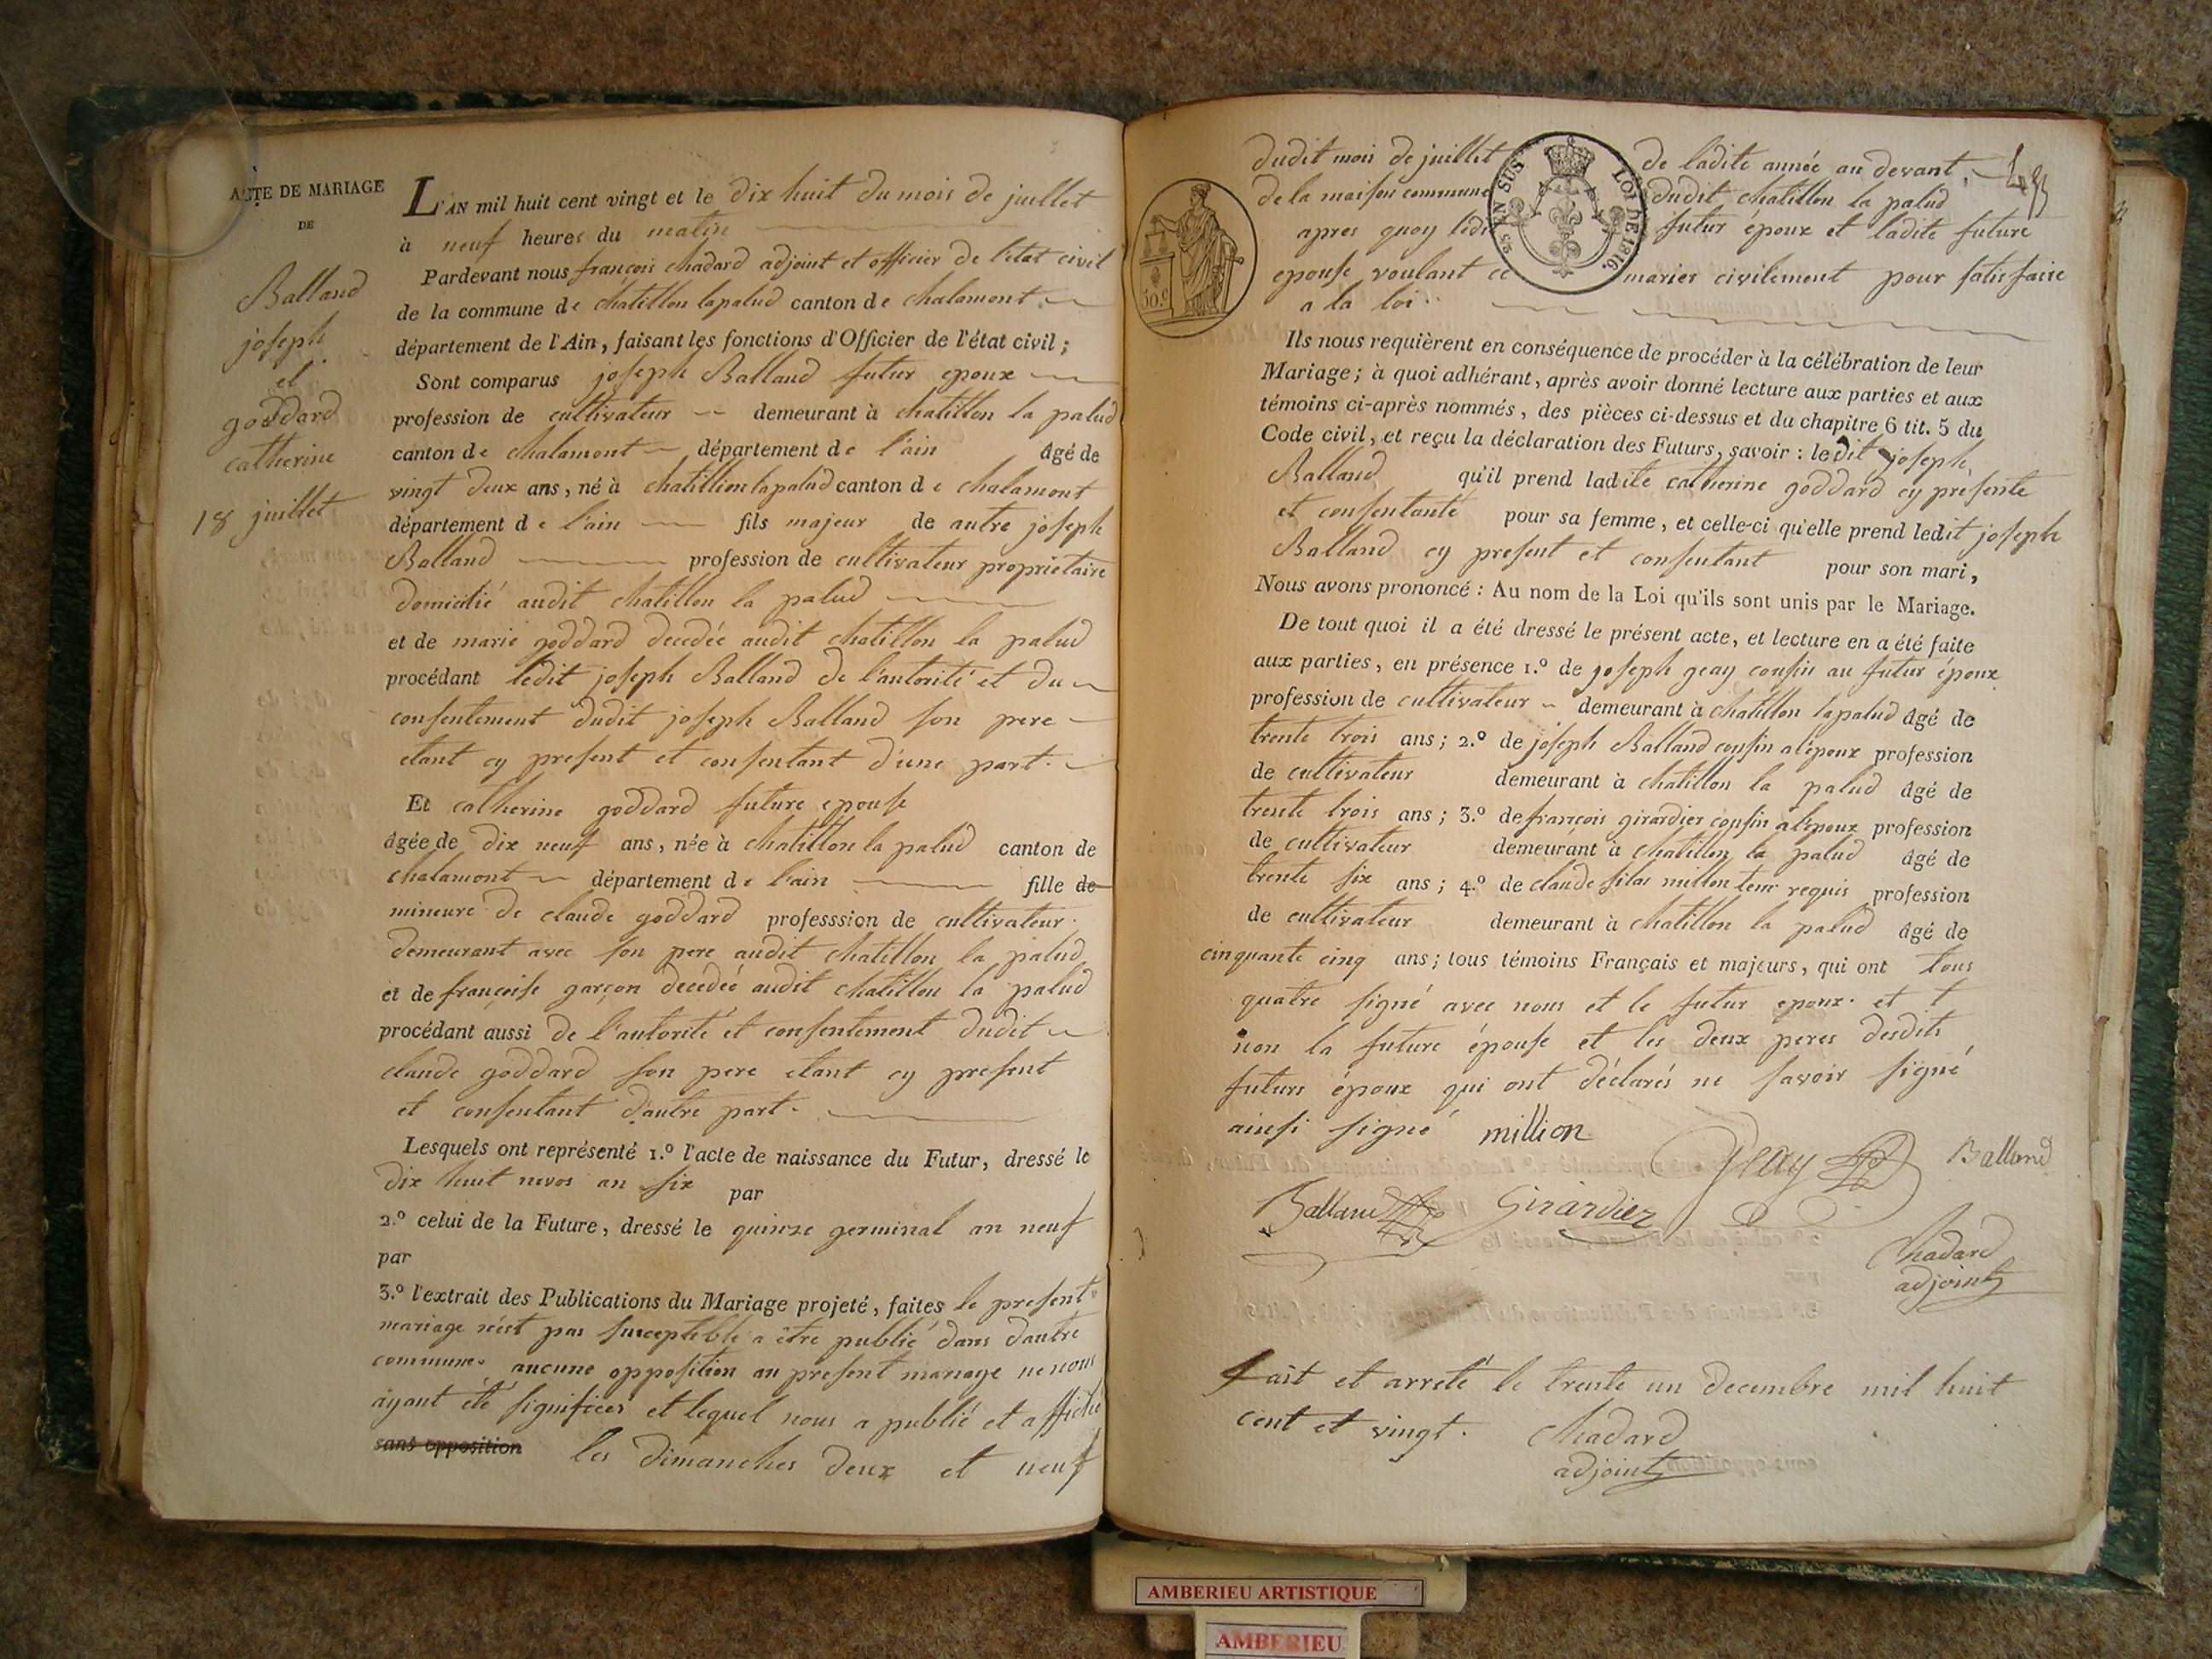 ACTE DE MARIAGE
DE
Balland
joseph
et
goddard
catherine
18 juillet
L'AN mil huit cent vingt et le dix huit du mois de juillet
à neuf heures du matin
Pardevant nous françois chadard adjoint et officier de l'état civil
de la commune de chatillon lapalud canton de chalamont
département de l'Ain, faisant les fonctions d'Officier de l'état civil ;
Sont comparus joseph Balland futur epoux
profession de cultivateur demeurant à chatillon la palud
canton de chalamont département de l'ain âgé de
vingt deux ans, né à chatillion lapalud canton de chalamont
département de l'ain fils majeur de autre joseph
Balland profession de cultivateur proprietaire
domicilié audit chatillon la palud
et de marie goddard decedée audit chatillon la palud
procédant ledit joseph Balland de l'autorité et du
consentement dudit joseph Balland son pere
etant cy present et consentant d'une part.
Et catherine goddard future epouse
âgée de dix neuf ans, née à chatillon la palud canton de
chalamont département de l'ain fille de
mineure de claude goddard professsion de cultivateur
demeurant avec son pere audit chatillon la palud
et de françoise garçon decedée audit chatillon la palud
procédant aussi de l'autorité et consentement dudit
claude goddard son pere etant cy present
et consentant d'autre part.
Lesquels ont représenté 1.º l'acte de naissance du Futur, dressé le
dix huit nivos an six par
2.º celui de la Future, dressé le quinze germinal an neuf
par
3.º l'extrait des Publications du Mariage projeté, faites le present
mariage n'est pas susceptible a être publié dans d'autre
commune. aucune opposition au present mariage ne nous
ayant été signifiées et lequel nous a publié et affiché
sans opposition les dimanches deux et neuf
dudit mois de juillet de ladite année au devant
de la maison commune dudit chatillon la palud
apres quoy ledit futur époux et ladite future
epouse voulant ce marier civilement pour satisfaire
a la loi.
50.c
25 EN SUS
LOI DE 1816.
Ils nous requièrent en conséquence de procéder à la célébration de leur
Mariage ; à quoi adhérant, après avoir donné lecture aux parties et aux
témoins ci-après nommés, des pièces ci-dessus et du chapitre 6 tit. 5 du
Code civil, et reçu la déclaration des Futurs, savoir : ledit joseph
Balland qu'il prend ladite catherine goddard cy presente
et consentante pour sa femme, et celle-ci qu'elle prend ledit joseph
Balland cy present et consentant pour son mari,
Nous avons prononcé : Au nom de la Loi qu'ils sont unis par le Mariage.
De tout quoi il a été dressé le présent acte, et lecture en a été faite
aux parties, en présence 1.º de joseph geay cousin au futur époux
profession de cultivateur demeurant à chatillon lapalud âgé de
trente trois ans ; 2.º de joseph Balland cousin a l'epoux profession
de cultivateur demeurant à chatillon la palud âgé de
trente trois ans ; 3.º de françois girardier cousin a l'epoux profession
de cultivateur demeurant à chatillon la palud âgé de
trente six ans ; 4.º de claude silas million requis profession
de cultivateur demeurant à chatillon la palud âgé de
cinquante cinq ans ; tous témoins Français et majeurs, qui ont tous
quatre signé avec nous et le futur epoux. et
non la future épouse et les deux peres desdits
futurs époux qui ont déclarés ne savoir signé
ainsi signé million
Geay
Balland
Balland
Girardier
Chadard
adjoint
fait et arreté le trente un decembre mil huit
cent et vingt. Chadard
adjoint
AMBERIEU ARTISTIQUE
AMBERIEU